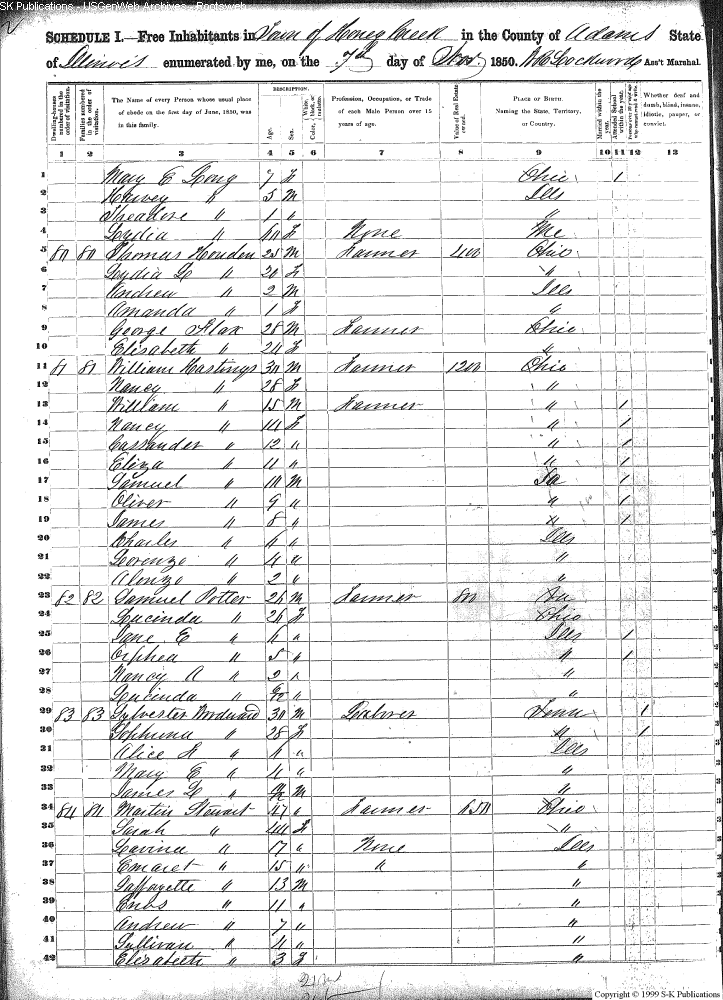 SK Publications - USGenWeb Archives - Rootsweb
SCHEDULE I.—Free Inhabitants in Town of Honey Creek in the County of Adams State
of Illinois enumerated by me, on the 7th day of Nov. 1850. Lockwood Ass't Marshal.
DESCRIPTION.
Dwelling-houses numbered in the order of visitation.
Families numbered in the order of visitation.
The Name of every Person whose usual place of abode on the first day of June, 1850, was in this family.
Age.
Sex.
Color, White, black, or mulatto.
Profession, Occupation, or Trade of each Male Person over 15 years of age.
Value of Real Estate owned.
PLACE OF BIRTH. Naming the State, Territory, or Country.
Married within the year.
Attended School within the year.
Whether deaf and dumb, blind, insane, idiotic, pauper, or convict.
1 2 3 4 5 6 7 8 9 10 11 12 13
1 Mary E Long 7 F Ohio 1
2 Harvey " 5 M Ills
3 Theadore " 1 " "
4 Lydia " 60 F None Me
5 80 80 Thomas Houden 25 M Farmer 400 Ohio
6 Lydia L " 20 F "
7 Andrew " 2 M Ills
8 Amanda " 1 F "
9 George Flax 28 M Farmer Ohio
10 Elisabeth " 24 F "
11 81 81 William Hastings 30 M Farmer 1200 Ohio
12 Nancy " 28 F "
13 William " 15 M Farmer " 1
14 Nancy " 14 F " 1
15 Cassander " 12 " " 1
16 Eliza " 11 " " 1
17 Samuel " 10 M Ia 1
18 Oliver " 9 " " 1
19 James " 8 " " 1
20 Charles " 6 " Ills
21 Lorenzo " 4 " "
22 Alonzo " 2 " "
23 82 82 Samuel Potter 26 M Farmer 800
24 Lucinda " 26 F Ohio
25 Jane E " 6 " Ills 1
26 Orphea " 5 " " 1
27 Nancy A " 2 " "
28 Lucinda " " "
29 83 83 Sylvester Woodward 30 M Laborer Tenn 1
30 Sophrona " 28 F " 1
31 Alice " 6 " Ills
32 Mary E " 4 " "
33 James L " M "
34 84 84 Martin Stewart 47 " Farmer 650 Ohio
35 Sarah " 44 F "
36 Lavina " 17 " None Ills
37 Emaret " 15 " " "
38 Laffayette " 13 M "
39 Enos " 11 " "
40 Andrew " 7 " "
41 Sullivan " 4 " "
42 Elizabeth " 3 F "
Copyright © 1999 S-K Publications